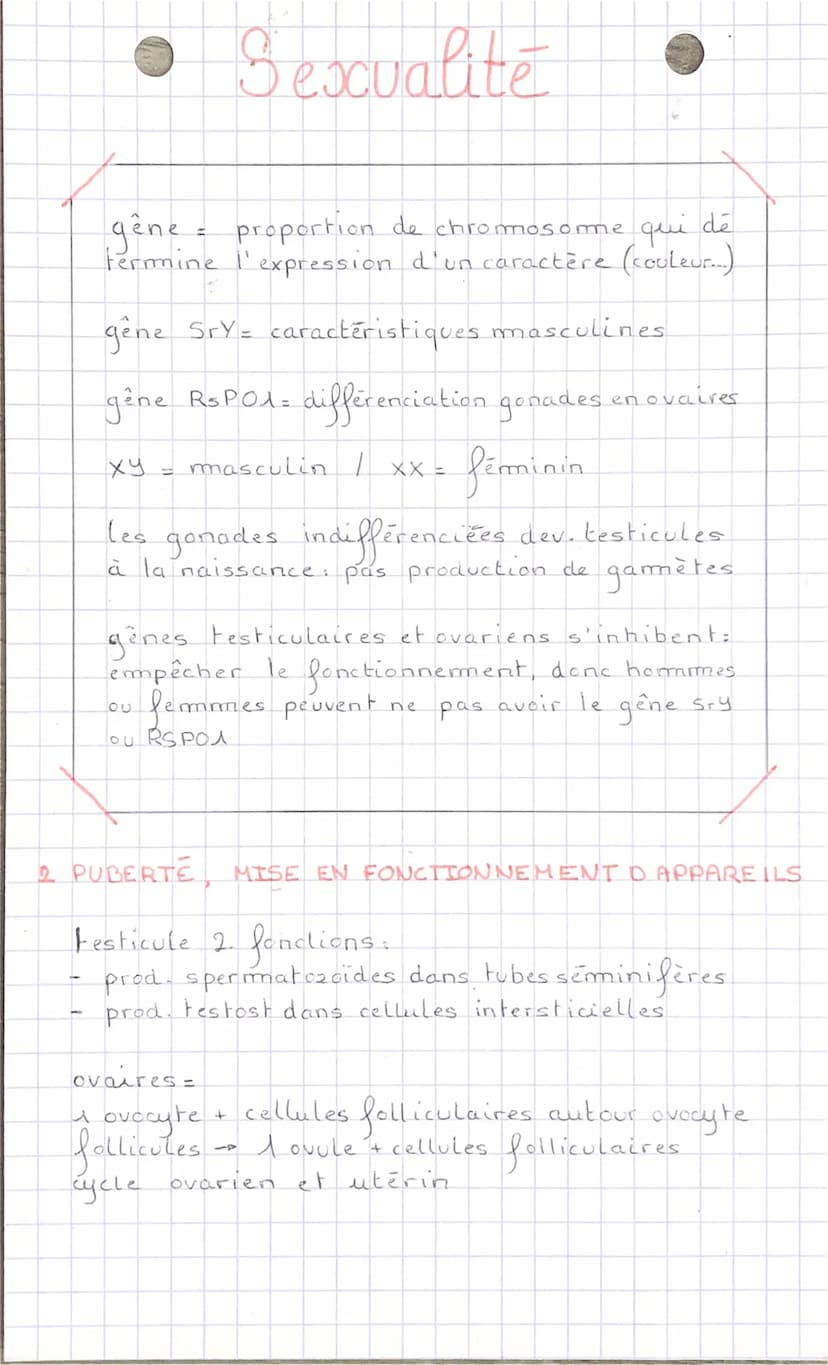 Sexualité
gêne = proportion de chromosome qui dé
termine l'expression d'un caractère (couleur...)
gêne SrY = caractéristiques masculines
gêne RsPO1 = différenciation gonades en ovaires
xy = masculin / xx = féminin
les gonades indifférenciées dev. testicules
à la naissance : pas production de gamètes
gênes testiculaires et ovariens s'inhibent :
empêcher le fonctionnement, donc hommes
ou femmes peuvent ne pas avoir le gêne sry
ou RSPO1
2 PUBERTÉ, MISE EN FONCTIONNEMENT D APPAREILS
testicule 2. fonctions :
- prod. spermatozoïdes dans tubes séminifères
- prod. testost dans cellules intersticielles
ovaires =
1 ovocyte + cellules folliculaires autour ovocyte
follicules → 1 ovule + cellules folliculaires
cycle ovarien et utérin